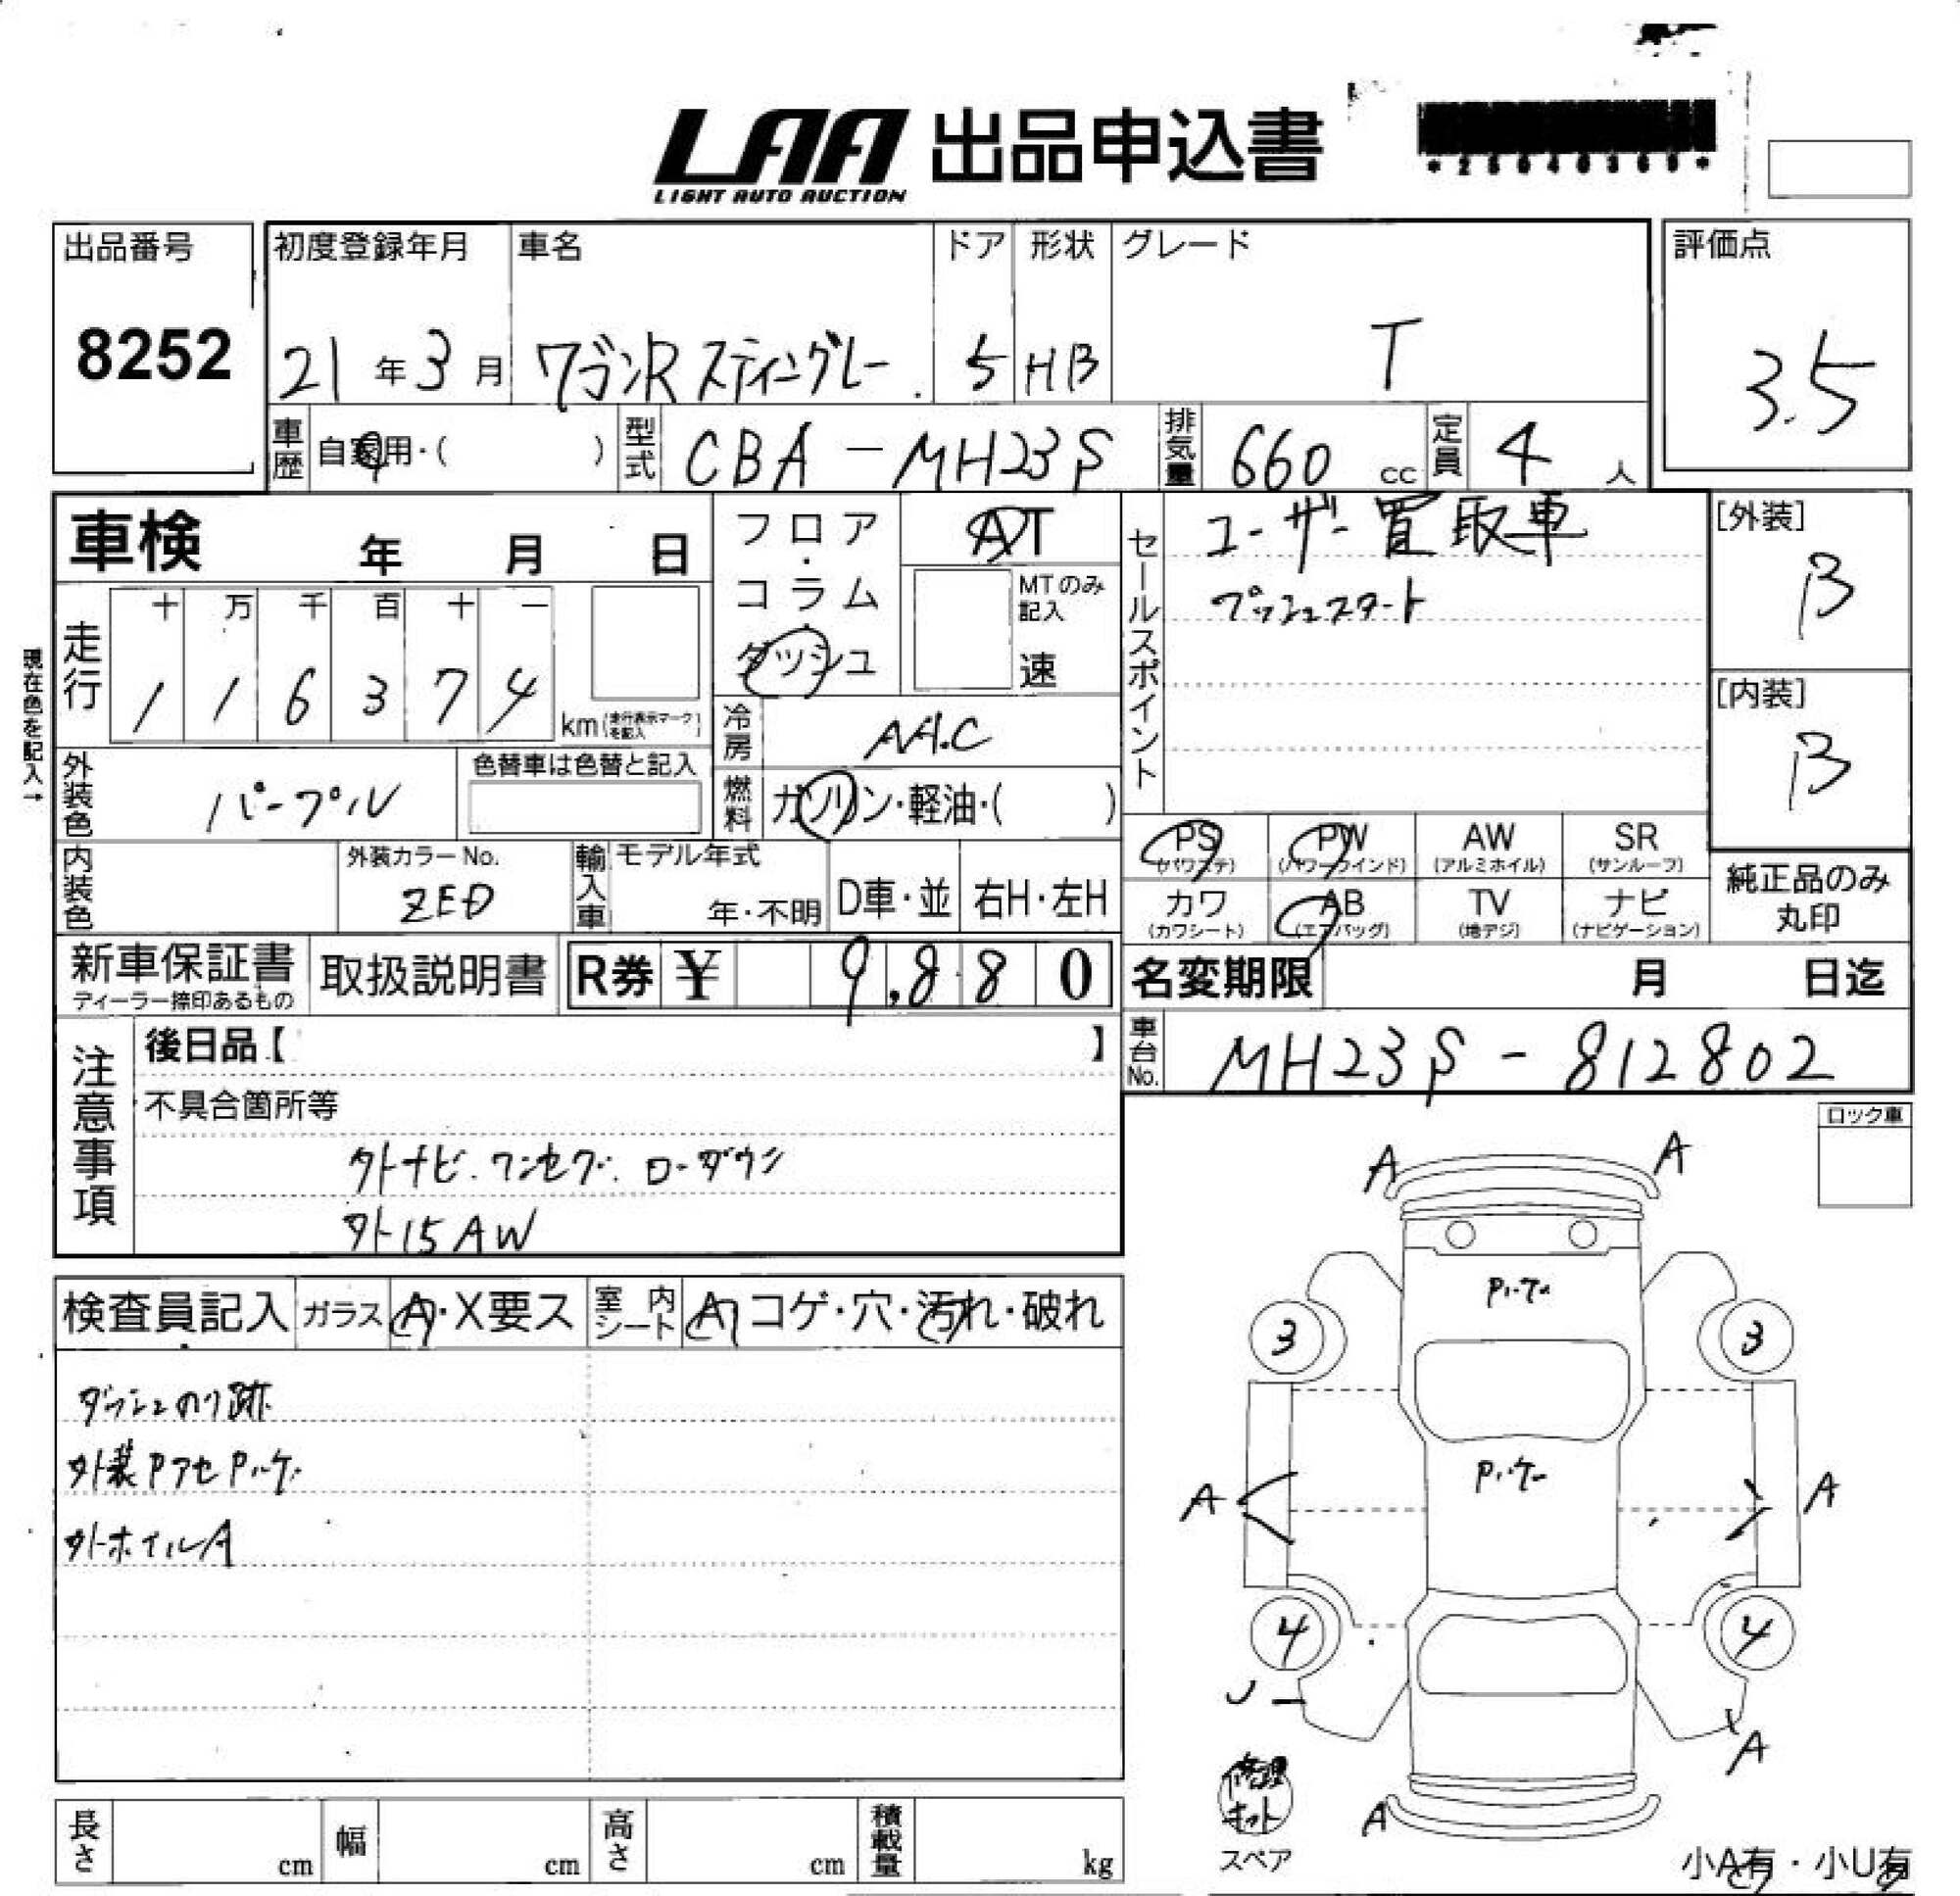 LAA 出品申込書
LIGHT AUTO AUCTION
出品番号
8252
初度登録年月
21年3月
車名
ワゴンRスティングレー
ドア
5
形状
HB
グレード
T
評価点
3.5
車歴 自家用・( )
型式 CBA-MH23S
排気量 660 cc
定員 4 人
車検 年 月 日
フロア・コラム・ダッシュ
AT
MTのみ記入
速
セールスポイント
ユーザー買取車
プッシュスタート
[外装]
B
[内装]
B
現在色を記入→
走行
十 万 千 百 十 一
1 1 6 3 7 4
km(走行表示マークを記入)
冷房 AAC
外装色 パープル
色替車は色替と記入
燃料 ガソリン・軽油・( )
PS (パワステ)
PW (パワーウインド)
AW (アルミホイル)
SR (サンルーフ)
カワ (カワシート)
AB (エアバッグ)
TV (地デジ)
ナビ (ナビゲーション)
純正品のみ
丸印
内装色
外装カラーNo.
ZED
輸入車
モデル年式
年・不明
D車・並
右H・左H
新車保証書
ディーラー捺印あるもの
取扱説明書
R券 ¥ 9,880
名変期限 月 日迄
車台No. MH23S-812802
注意事項
後日品【 】
不具合箇所等
外ナビ.ワンセグ.ローダウン
外15AW
ロック車
検査員記入
ガラス A・X要ス
室内シート A コゲ・穴・汚れ・破れ
ダッシュのり跡
外装PアセPハゲ
外ホイルA
A A
Pハゲ
3 3
Pハゲ
A A
4 4
A
A
修理キット
スペア
小A有・小U有
長さ cm
幅 cm
高さ cm
積載量 kg